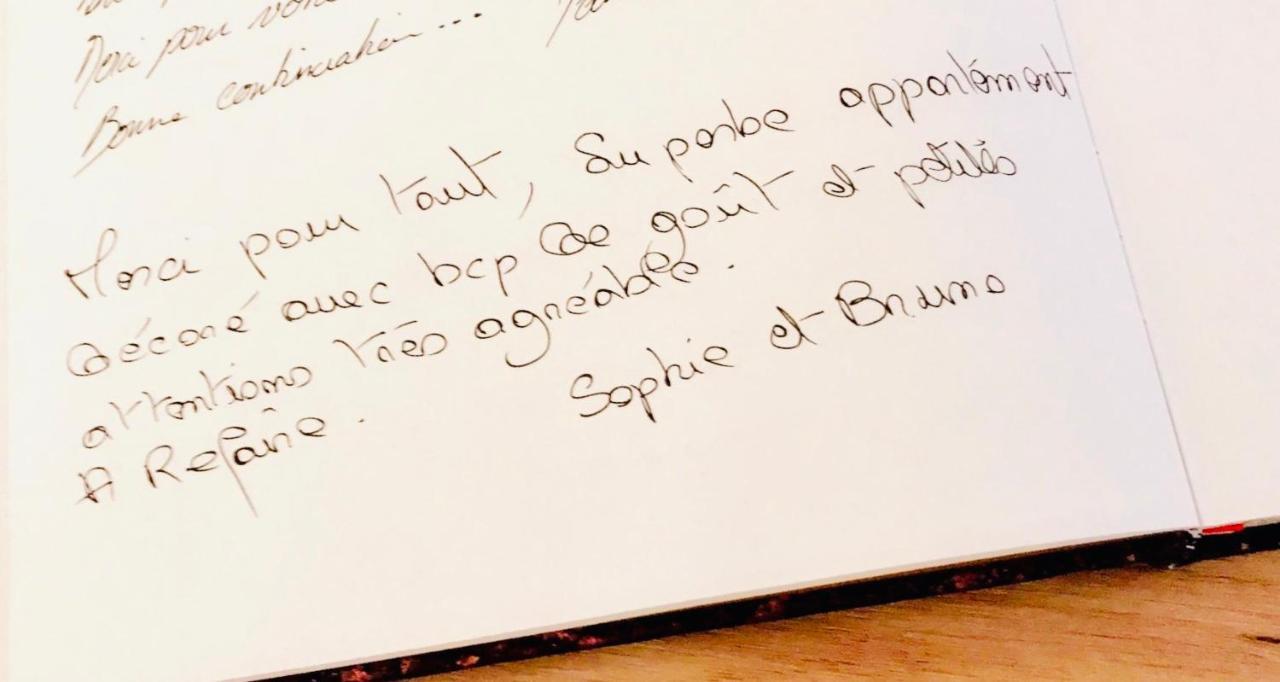 Merci pour votre
Bonne continuation...
Merci pour tout, Superbe appartément
décoré avec bcp de goût et petités
attentions très agréable.
A Refaire.
Sophie et Bruno